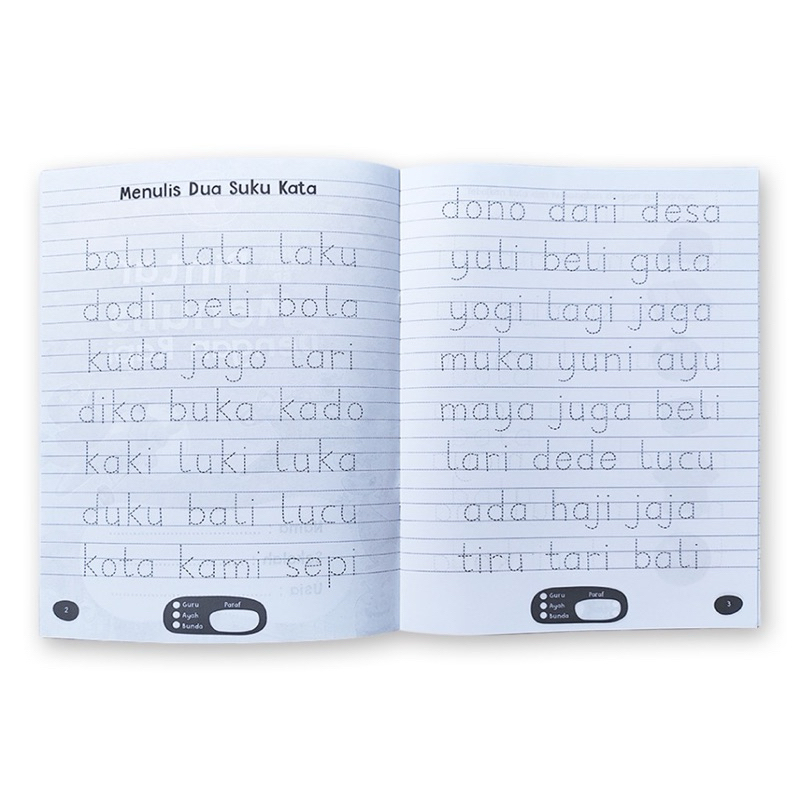 Menulis Dua Suku Kata
bolu lala laku
dodi beli bola
kuda jago lari
diko buka kado
kaki luki luka
duku bali lucu
kota kami sepi
2
Guru Paraf
Ayah
Bunda
dono dari desa
yuli beli gula
yogi lagi jaga
muka yuni ayu
maya juga beli
lari dede lucu
ada haji jaja
tiru tari bali
Guru Paraf
Ayah
Bunda
3